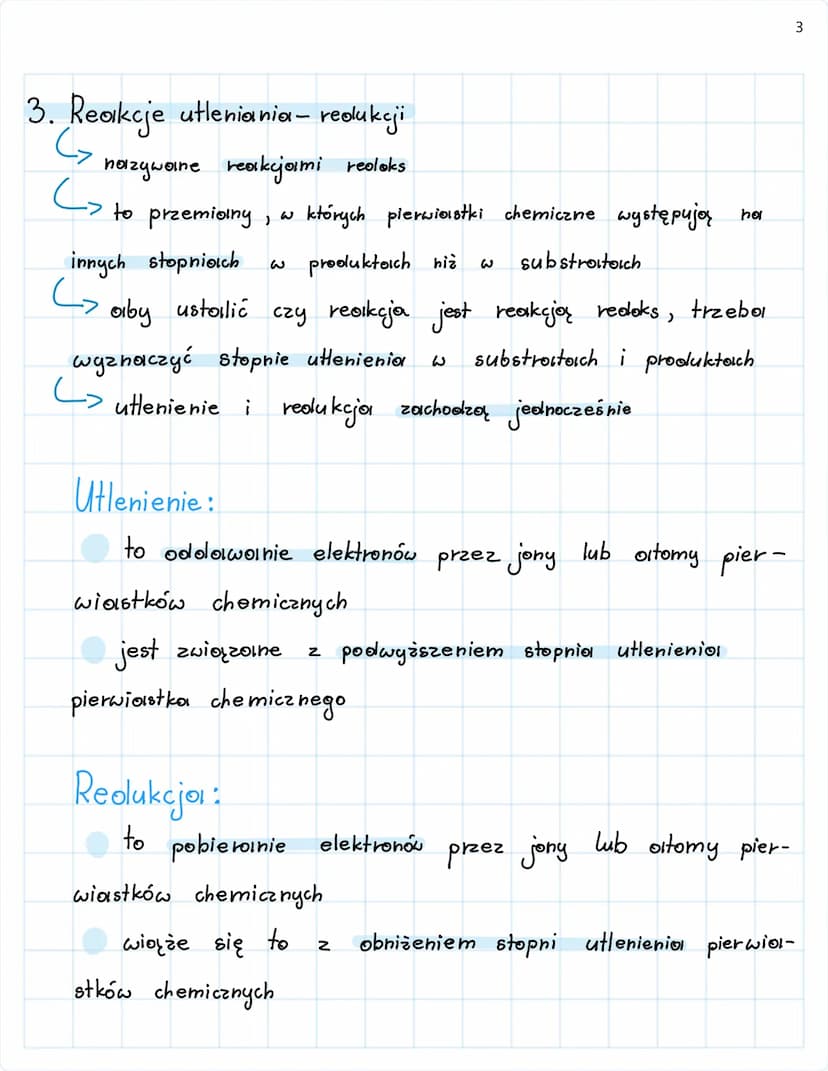 3
3. Reakcje utleniania - redukcji
nazywane reakcjami redoks
to przemiany, w których pierwiastki chemiczne występują na
innych stopniach w produktach niż w substratach
aby ustalić czy reakcja jest reakcją redoks, trzeba
wyznaczyć stopnie utlenienia w substratach i produktach
utlenienie i redukcja zachodzą jednocześnie
Utlenienie:
to oddawanie elektronów przez jony lub atomy pier-
wiastków chemicznych
jest związane z podwyższeniem stopnia utlenienia
pierwiastka chemicznego
Redukcja:
to pobieranie elektronów przez jony lub atomy pier-
wiastków chemicznych
wiąże się to z obniżeniem stopni utlenienia pierwia-
stków chemicznych